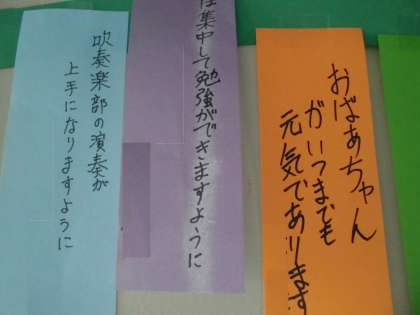 吹奏楽部の演奏が
上手になりますように
集中して勉強ができますように
おばあちゃん
がいつまでも
元気であります